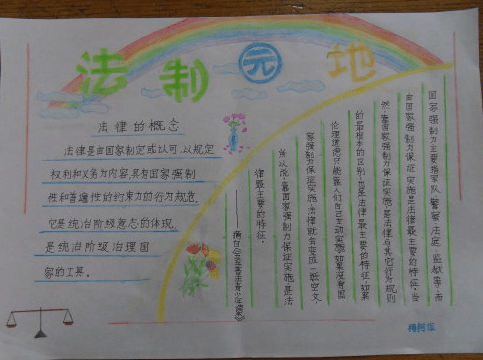 法制园地
法律的概念
法律是由国家制定或认可,以规定
权利和义务为内容,具有国家强制
性和普遍性的约束力的行为规范,
它是统治阶级意志的体现,
是统治阶级治理国
家的工具。
国家强制力主要指军队、警察、法庭、监狱等,而
由国家强制力保证实施是法律最主要的特征。当
然,靠国家强制力保证实施,是法律与其它行为规则
的最根本的区别,也是法律最主要的特征。如果
伦理道德只能靠人们自己主动实施,如果没有国
家强制力保证实施,法律就会变成一纸空文,
所以说,靠国家强制力保证实施是法
律最主要的特征。